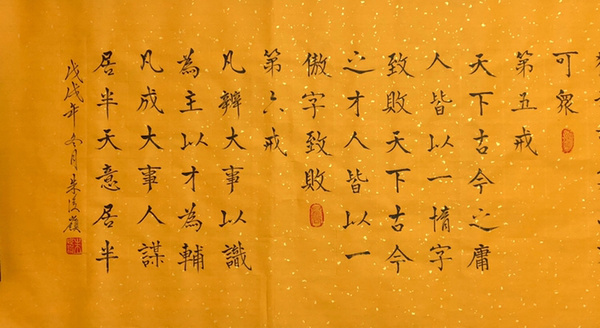 可衆
第五戒
天下古今之庸
人皆以一惰字
致敗天下古今
之才人皆以一
傲字致敗
第六戒
凡辦大事以識
為主以才為輔
凡成大事人謀
居半天意居半
戊戌年冬月